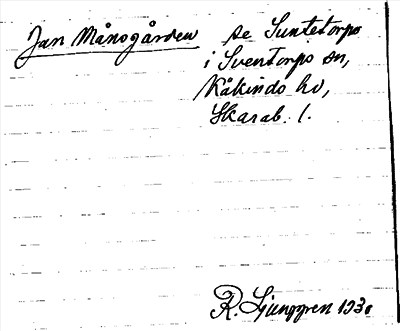 Jan Månsgården se Suntetorps
i Sventorps sn,
Kåkinds hd,
Skarab. l.
R. Ljunggren 1930